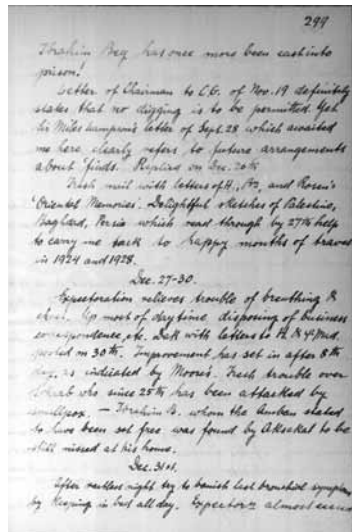 299
Ibrahim Beg has once more been cast into
prison!
Letter of Chairman to C.G. of Nov. 19 definitely
states that no digging is to be permitted. Yet
Sir Miles Lampson's letter of Sept. 28 which awaited
me here clearly refers to future arrangements
about finds. Replied on Dec. 20th
Fresh mail with letters of H., and Rosen's
'Oriental Memories'. Delightful sketches of Palestine,
Baghdad, Persia which read through by 27th help
to carry me back to happy months of travel
in 1924 and 1928.
Dec. 27-30.
Expectoration relieves trouble of breathing &
chest. Up most of daytime disposing of business
correspondence, etc. Dak with letters to
posted on 30th. Improvement has set in after 8th
day, as indicated by Moore's. Fresh trouble over
who since 25th has been attacked by
smallpox. — Ibrahim B. whom the Amban stated
to have been set free was found by Aksakal to be
still missed at his home.
Dec. 31st.
After restless night try to banish last bronchial symptoms
by keeping in bed all day. almost